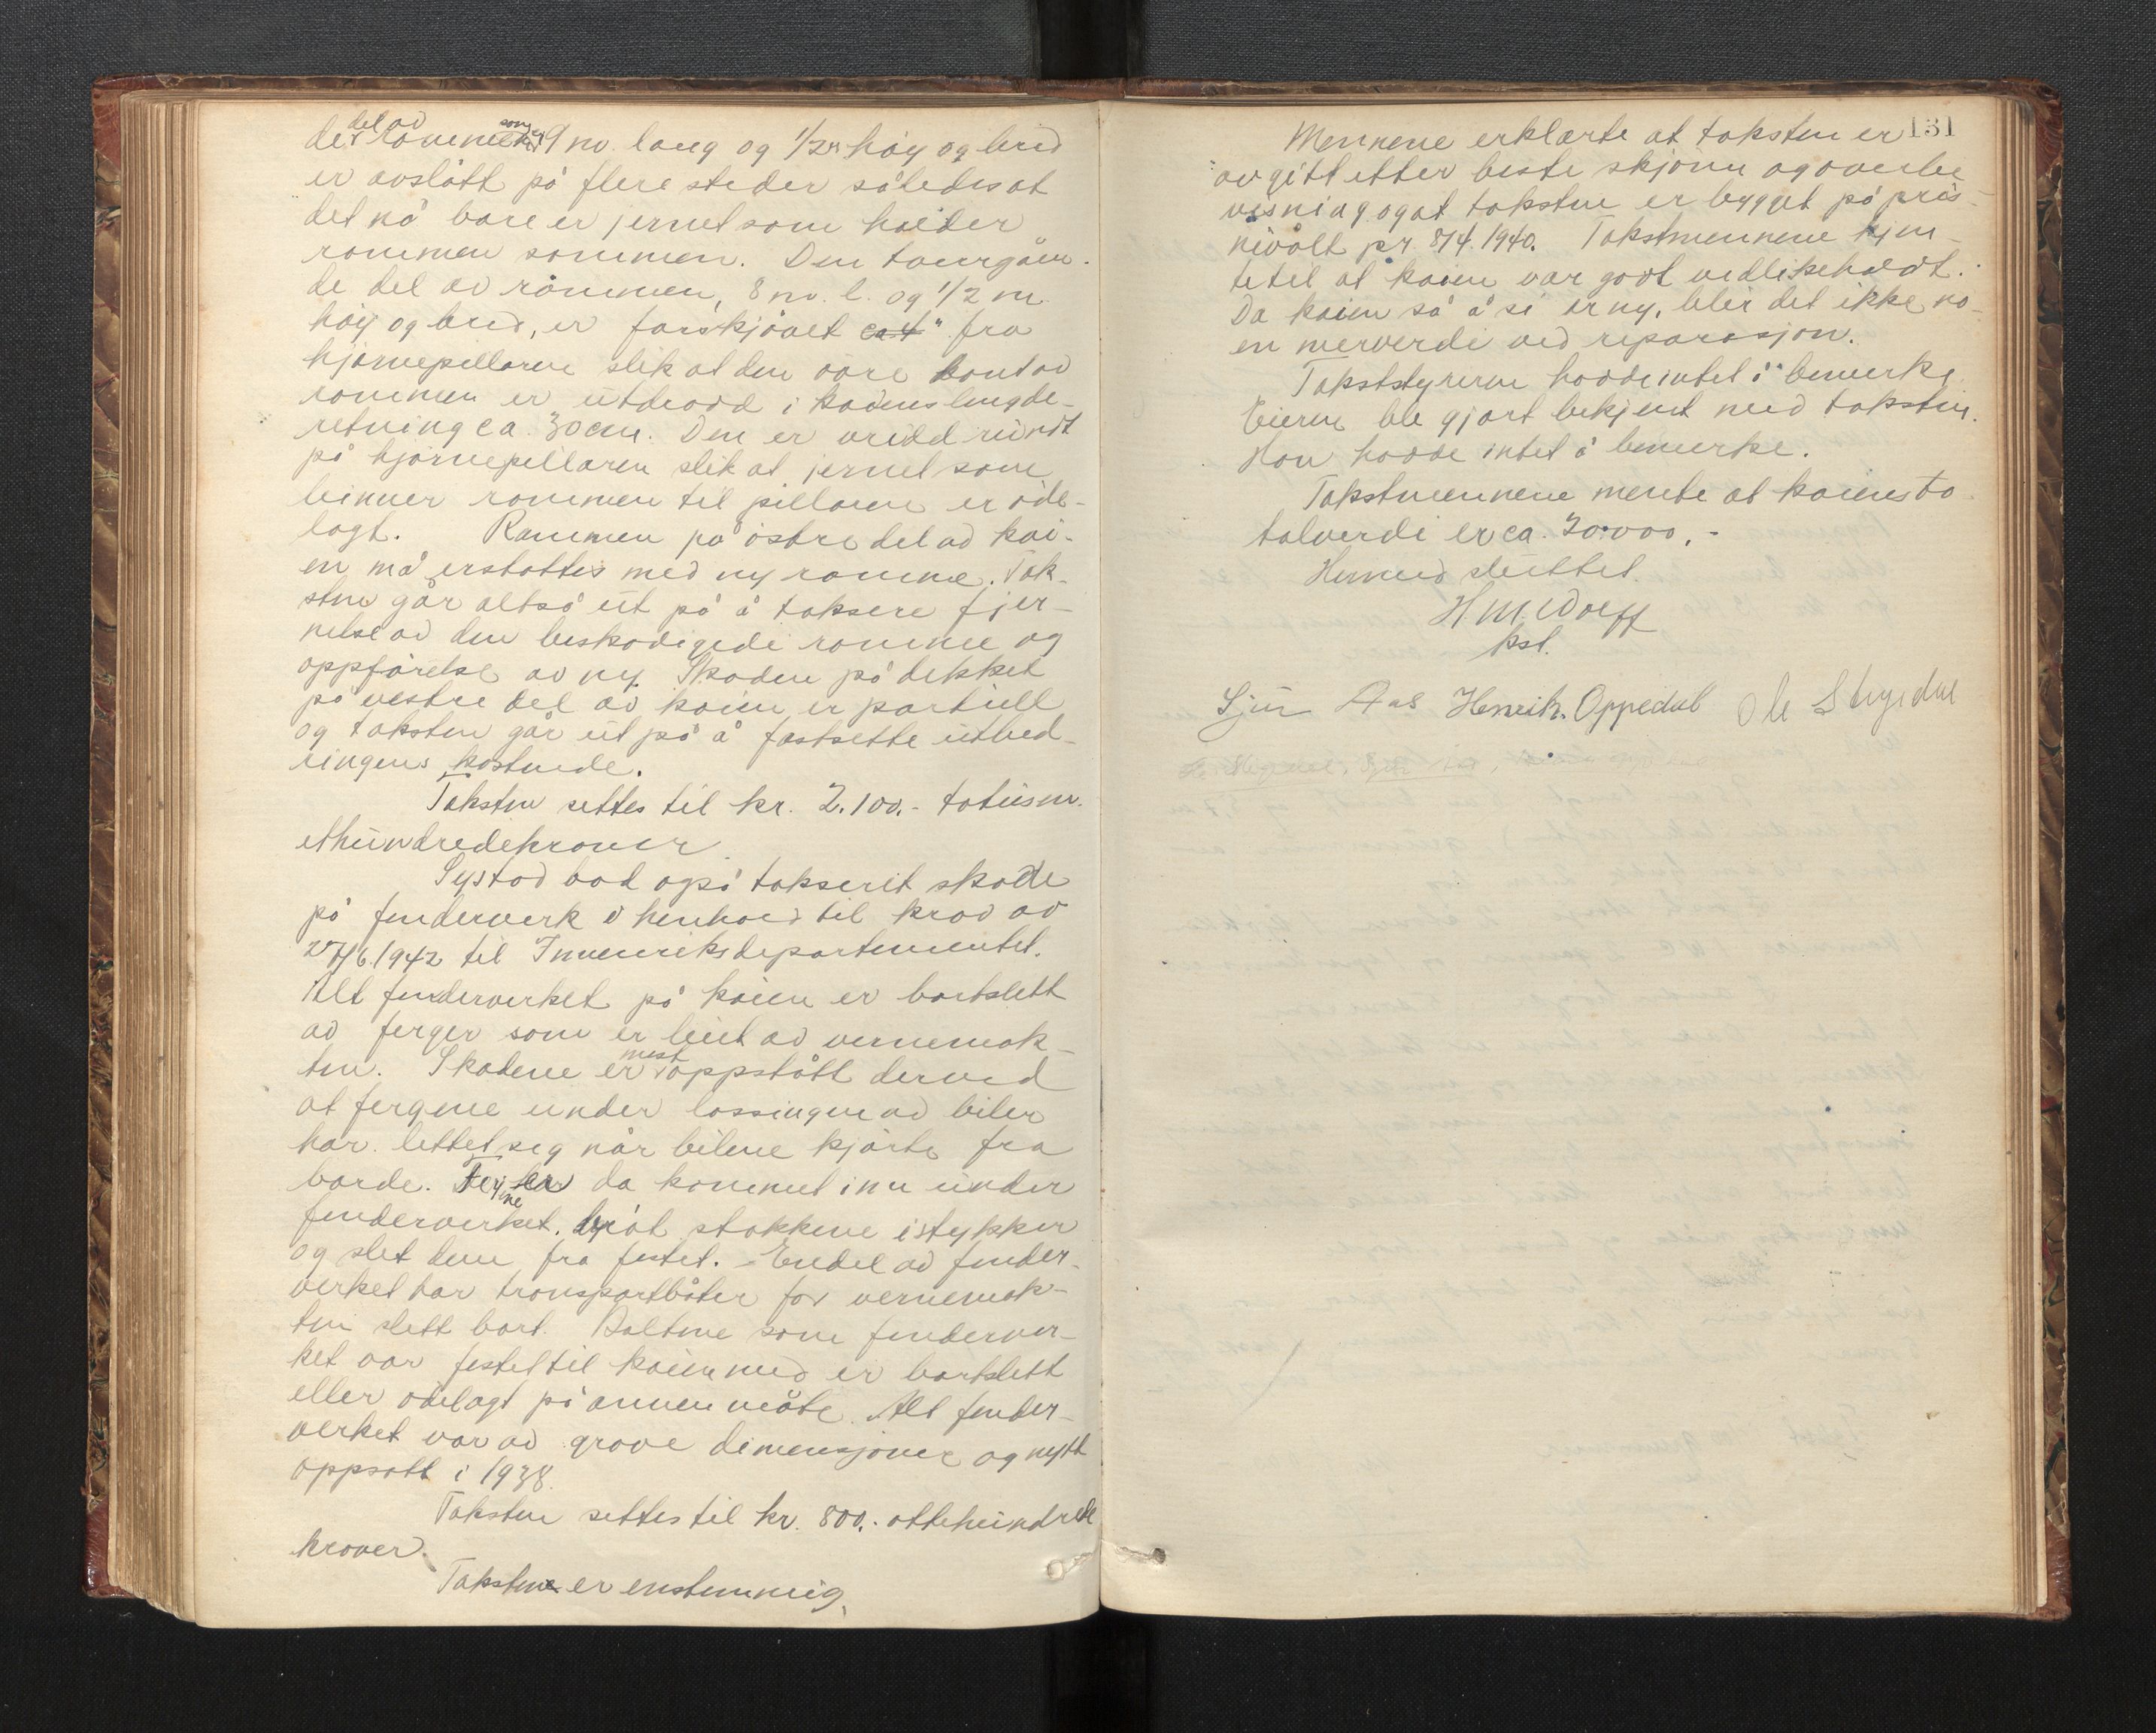 del av
som
der rammen er 9 m. lang og 1/2 m høy og bred
er avslått på flere steder således at
det nå bare er jernet som holder
rammen sammen. Den tverrgåen-
de del av rammen, 8 m. l. og 1/2 m.
høy og bred, er forskjøvet ca 4" fra
hjørnepillaren slik at den øvre kant av
rammen er utdradd i kaiens lengde-
retning ca. 30 cm. Den er vridd rundt
på hjørnepillaren slik at jernet som
binner rammen til pillaren er øde-
lagt. Rammen på østre del av kai-
en må erstattes med ny ramme. Tak-
sten går altså ut på å taksere fjer-
nelse av den beskadigede ramme og
oppførelse av ny. Skaden på dekket
på vestre del av kaien er partiell
og taksten går ut på å fastsette utbed-
ringens kostnede.
Taksten settes til kr. 2.100.- totusen-
ethundredekroner.
Systad bad også taksert skade
på fenderverk i henhold til krav av
27/6. 1942 til Innenriksdepartementet.
Alt fenderverket på kaien er bortslett
av ferger som er leiet av vernemak-
ten. Skadene er mest oppstått derved
at fergene under lossingen av biler
har lettet seg når bilene kjørte fra
borde. Fergene er da kommet inn under
fenderverket, brøt stokkene i stykker
og slet dem fra festet. Endel av fender-
verket har transportbåter for vernemak-
ten slett bort. Boltene som fenderver-
ket var festet til kaien med er bortslett
eller ødelagt på annen måte. Alt fender-
verket var av grove dimensjoner og nytt
oppsatt i 1938.
Taksten settes til kr. 800.- ottehundrede
kroner.
Taksten er enstemmig.
131
Mennene erklærte at taksten er
avgitt etter beste skjønn og overbe-
visning og at taksten er bygget på pris-
nivået pr. 8/4. 1940. Takstmennene kjen-
te til at kaien var godt vedlikeholdt.
Da kaien så å si er ny, blir det ikke no-
en merverdi ved reparasjon.
Takststyreren hadde intet å bemerke.
Eieren ble gjort bekjent med taksten.
Han hadde intet å bemerke.
Takstmennene mente at kaiens to-
talverdi er ca. 30.000.-
Hermed sluttet.
kst.
Sjur Aas Henrik. Oppedal Ole